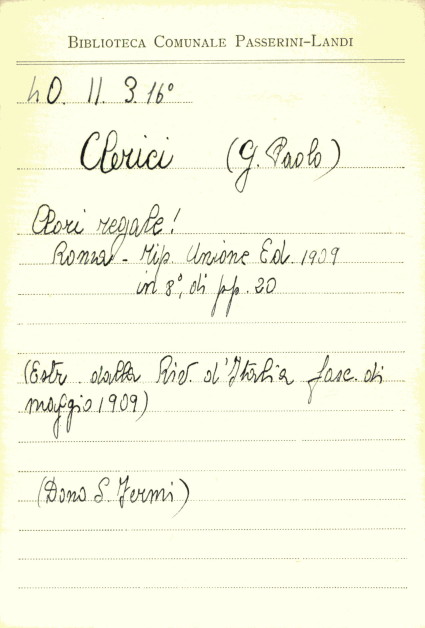 BIBLIOTECA COMUNALE PASSERINI-LANDI
4O. II. 3. 16°
Clerici (G. Paolo)
Clori regale!
Roma - Tip. Unione Ed. 1909
in 8°, di pp. 20
(Estr. dalla Riv. d'Italia fasc. di
maggio 1909)
(Dono S. Fermi)